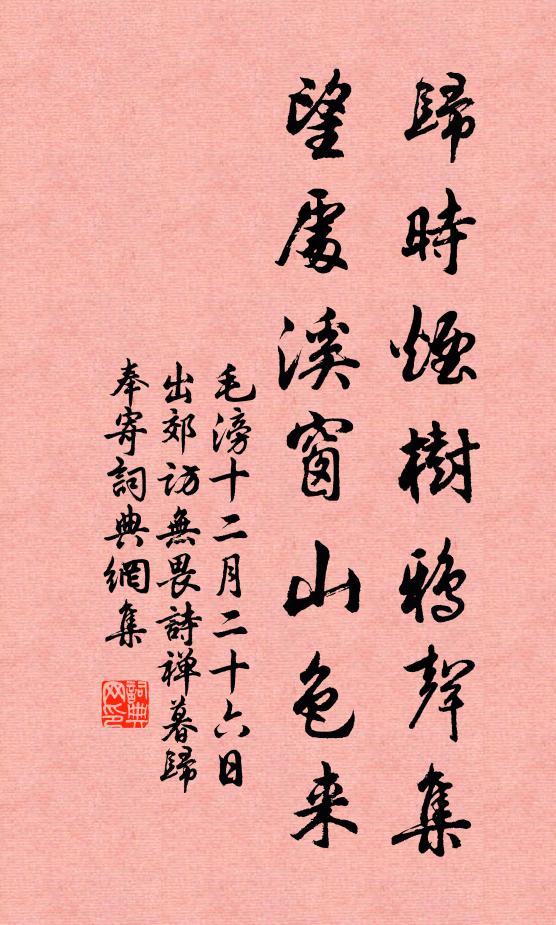 歸時煙樹鴉聲集
望處溪窗山色来
毛滂十二月二十六日
出郊訪無畏詩禅暮歸
奉寄詞典網集
詞典网印